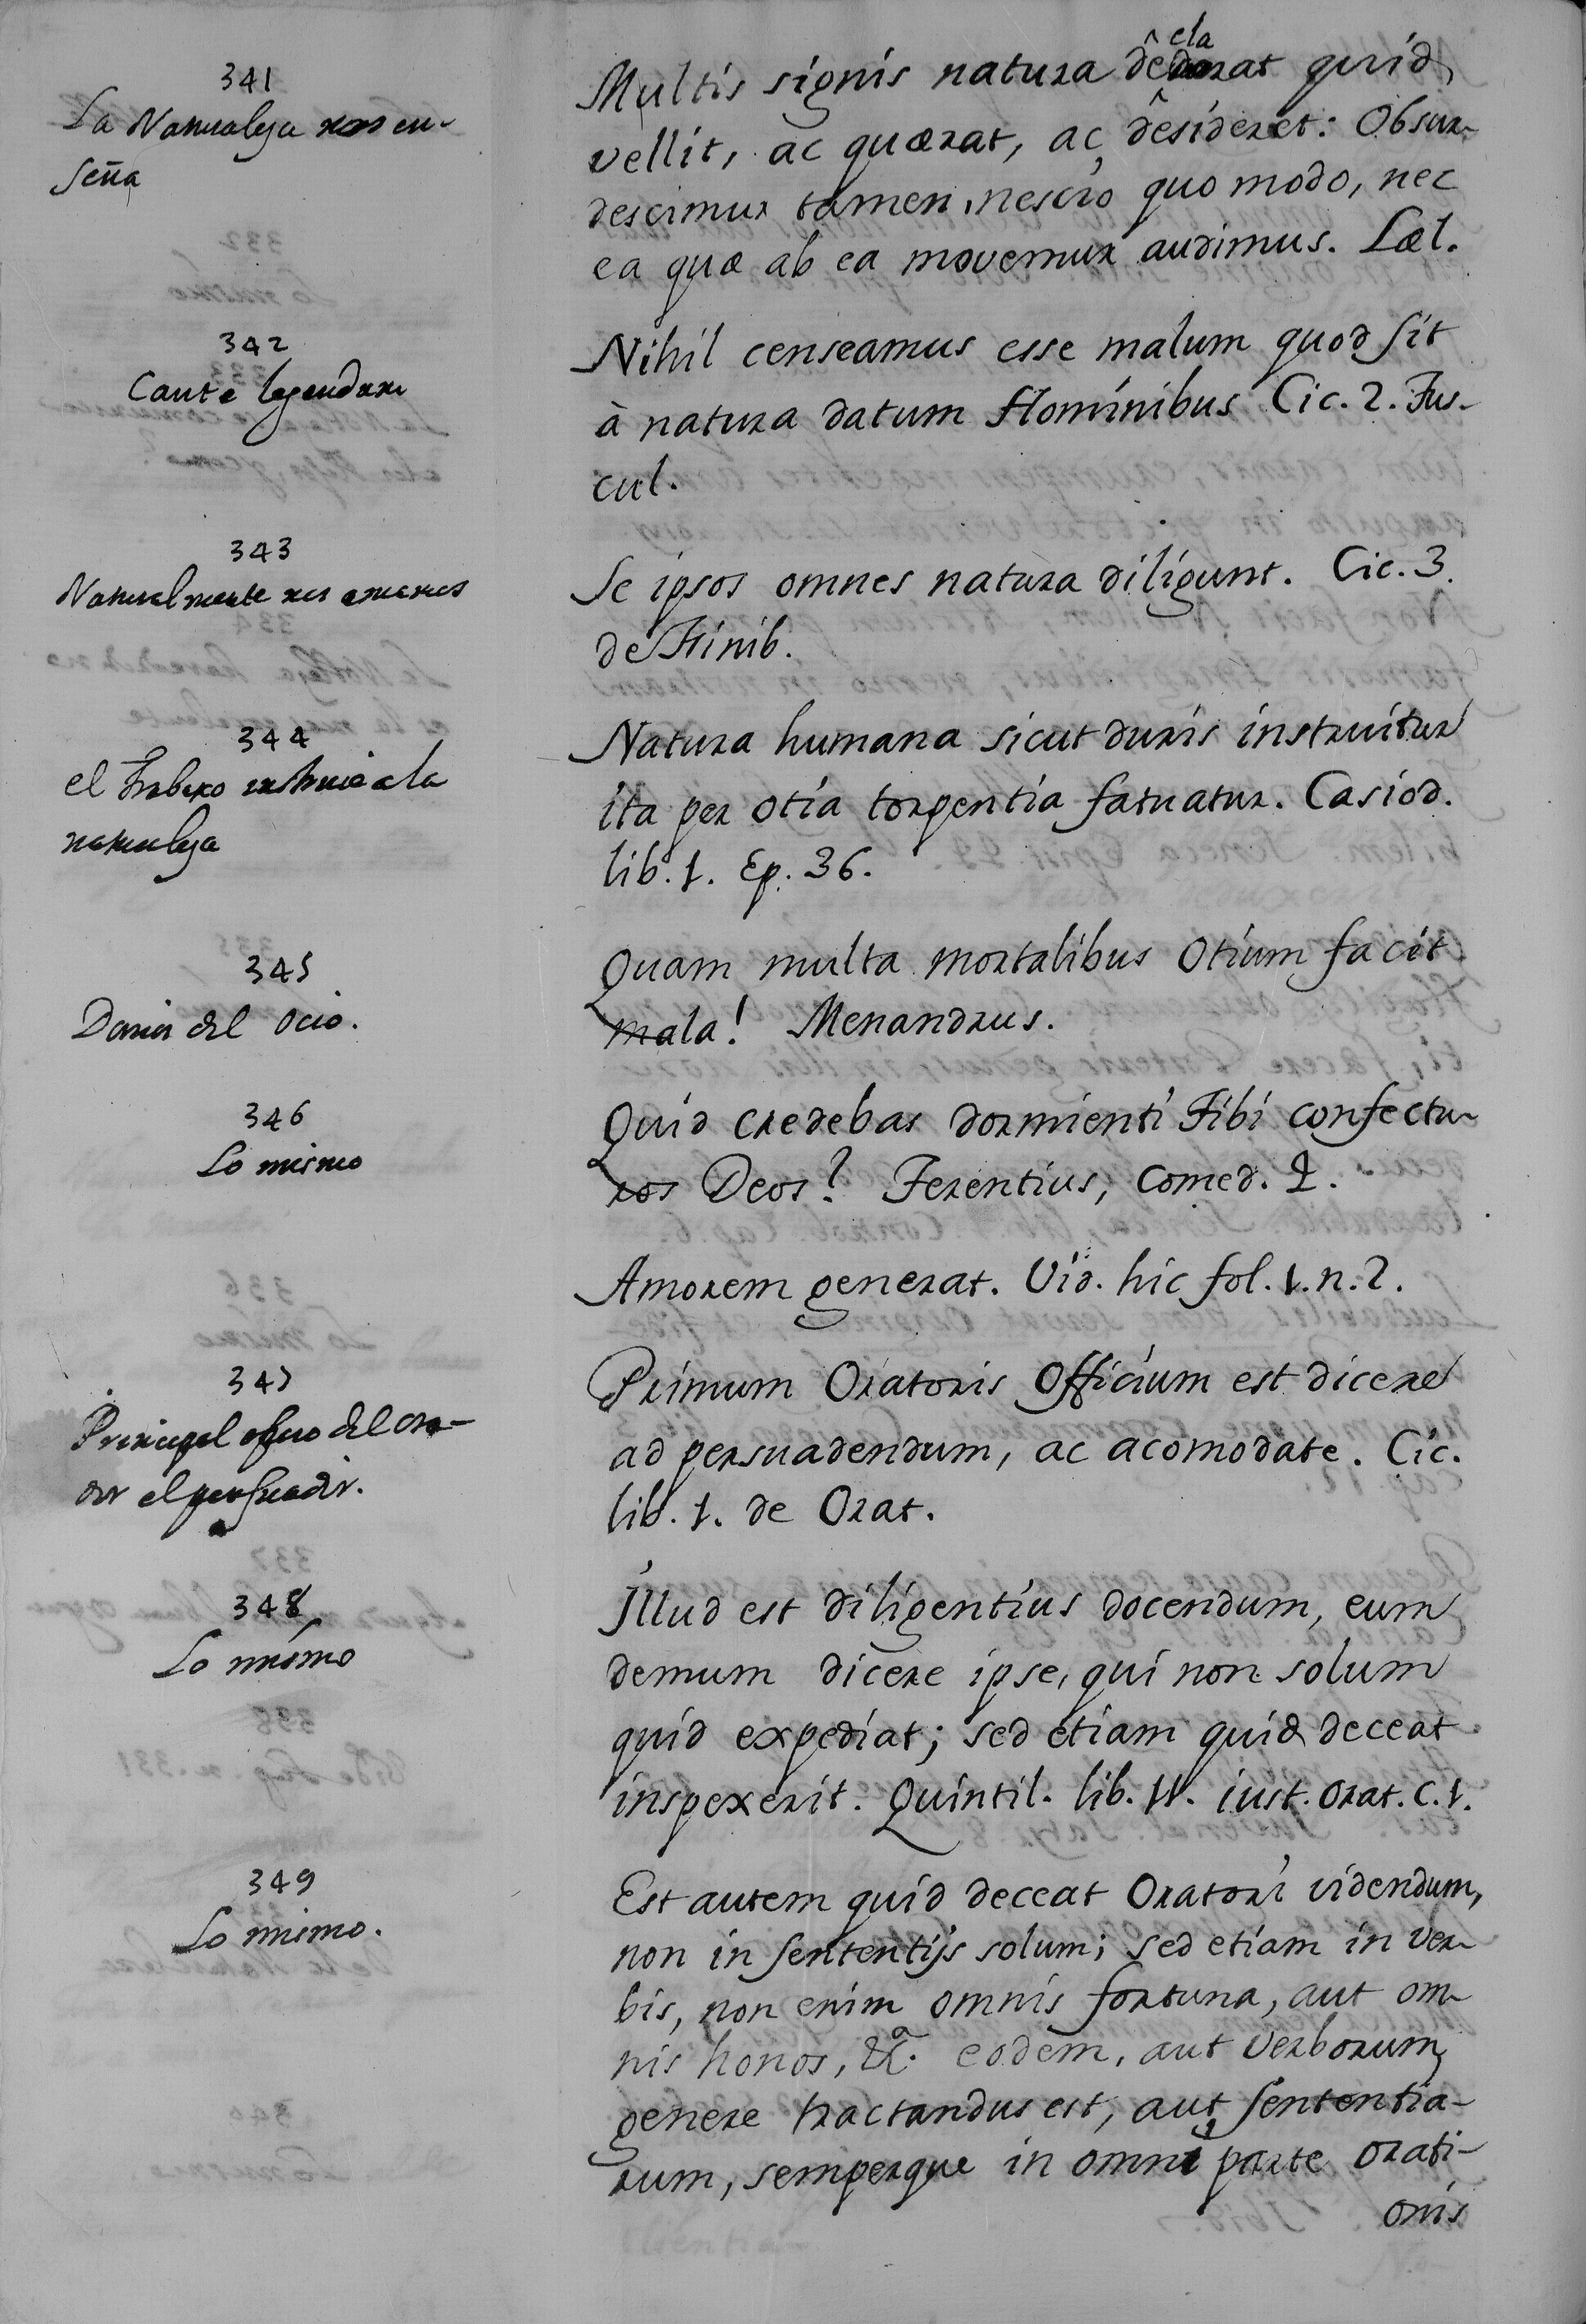 341
La Naturaleza nos en-
seña
Multis signis natura decla rat quid
vellit, ac quærat, ac desideret: Obsur-
descimus tamen, nescio quo modo, nec
ea quæ ab ea movemur audimus. Læl.
342
Caute legendum
Nihil censeamus esse malum quod sit
à natura datum Hominibus Cic. 2. Tus-
cul.
343
Naturalmente nos amamos
Se ipsos omnes natura diligunt. Cic. 3.
de Finib.
344
el Trabaxo instruie a la
naturaleza
Natura humana sicut duris instruitur
ita per otia torpentia fatuatur. Casiod.
lib. 1. Ep. 36.
345
Danios del Ocio.
Quam multa mortalibus Otium facit
mala! Menandrus.
346
Lo mismo
Quid credebas dormienti Tibi confectu-
ros Deos? Terentius, Comed. 2.
Amorem generat. Vid. hic fol. 1. n. 2.
347
Principal oficio del ora-
dor el persuadir.
Primum Oratoris Officium est dicere
ad persuadendum, ac acomodate. Cic.
lib. 1. de Orat.
348
Lo mismo
Illud est diligentius docendum, eum
demum dicere ipse, qui non solum
quid expediat; sed etiam quid deceat
inspexerit. Quintil. lib. 11. iust. Orat. C. 1.
349
Lo mismo.
Est autem quid deceat Oratori videndum,
non in sententijs solum; sed etiam in ver-
bis, non enim omnis fortuna, aut om-
nis honos, &ª. eodem, aut verborum
genere tractandus est, aut sententia-
rum, semperque in omni parte orati-
onis